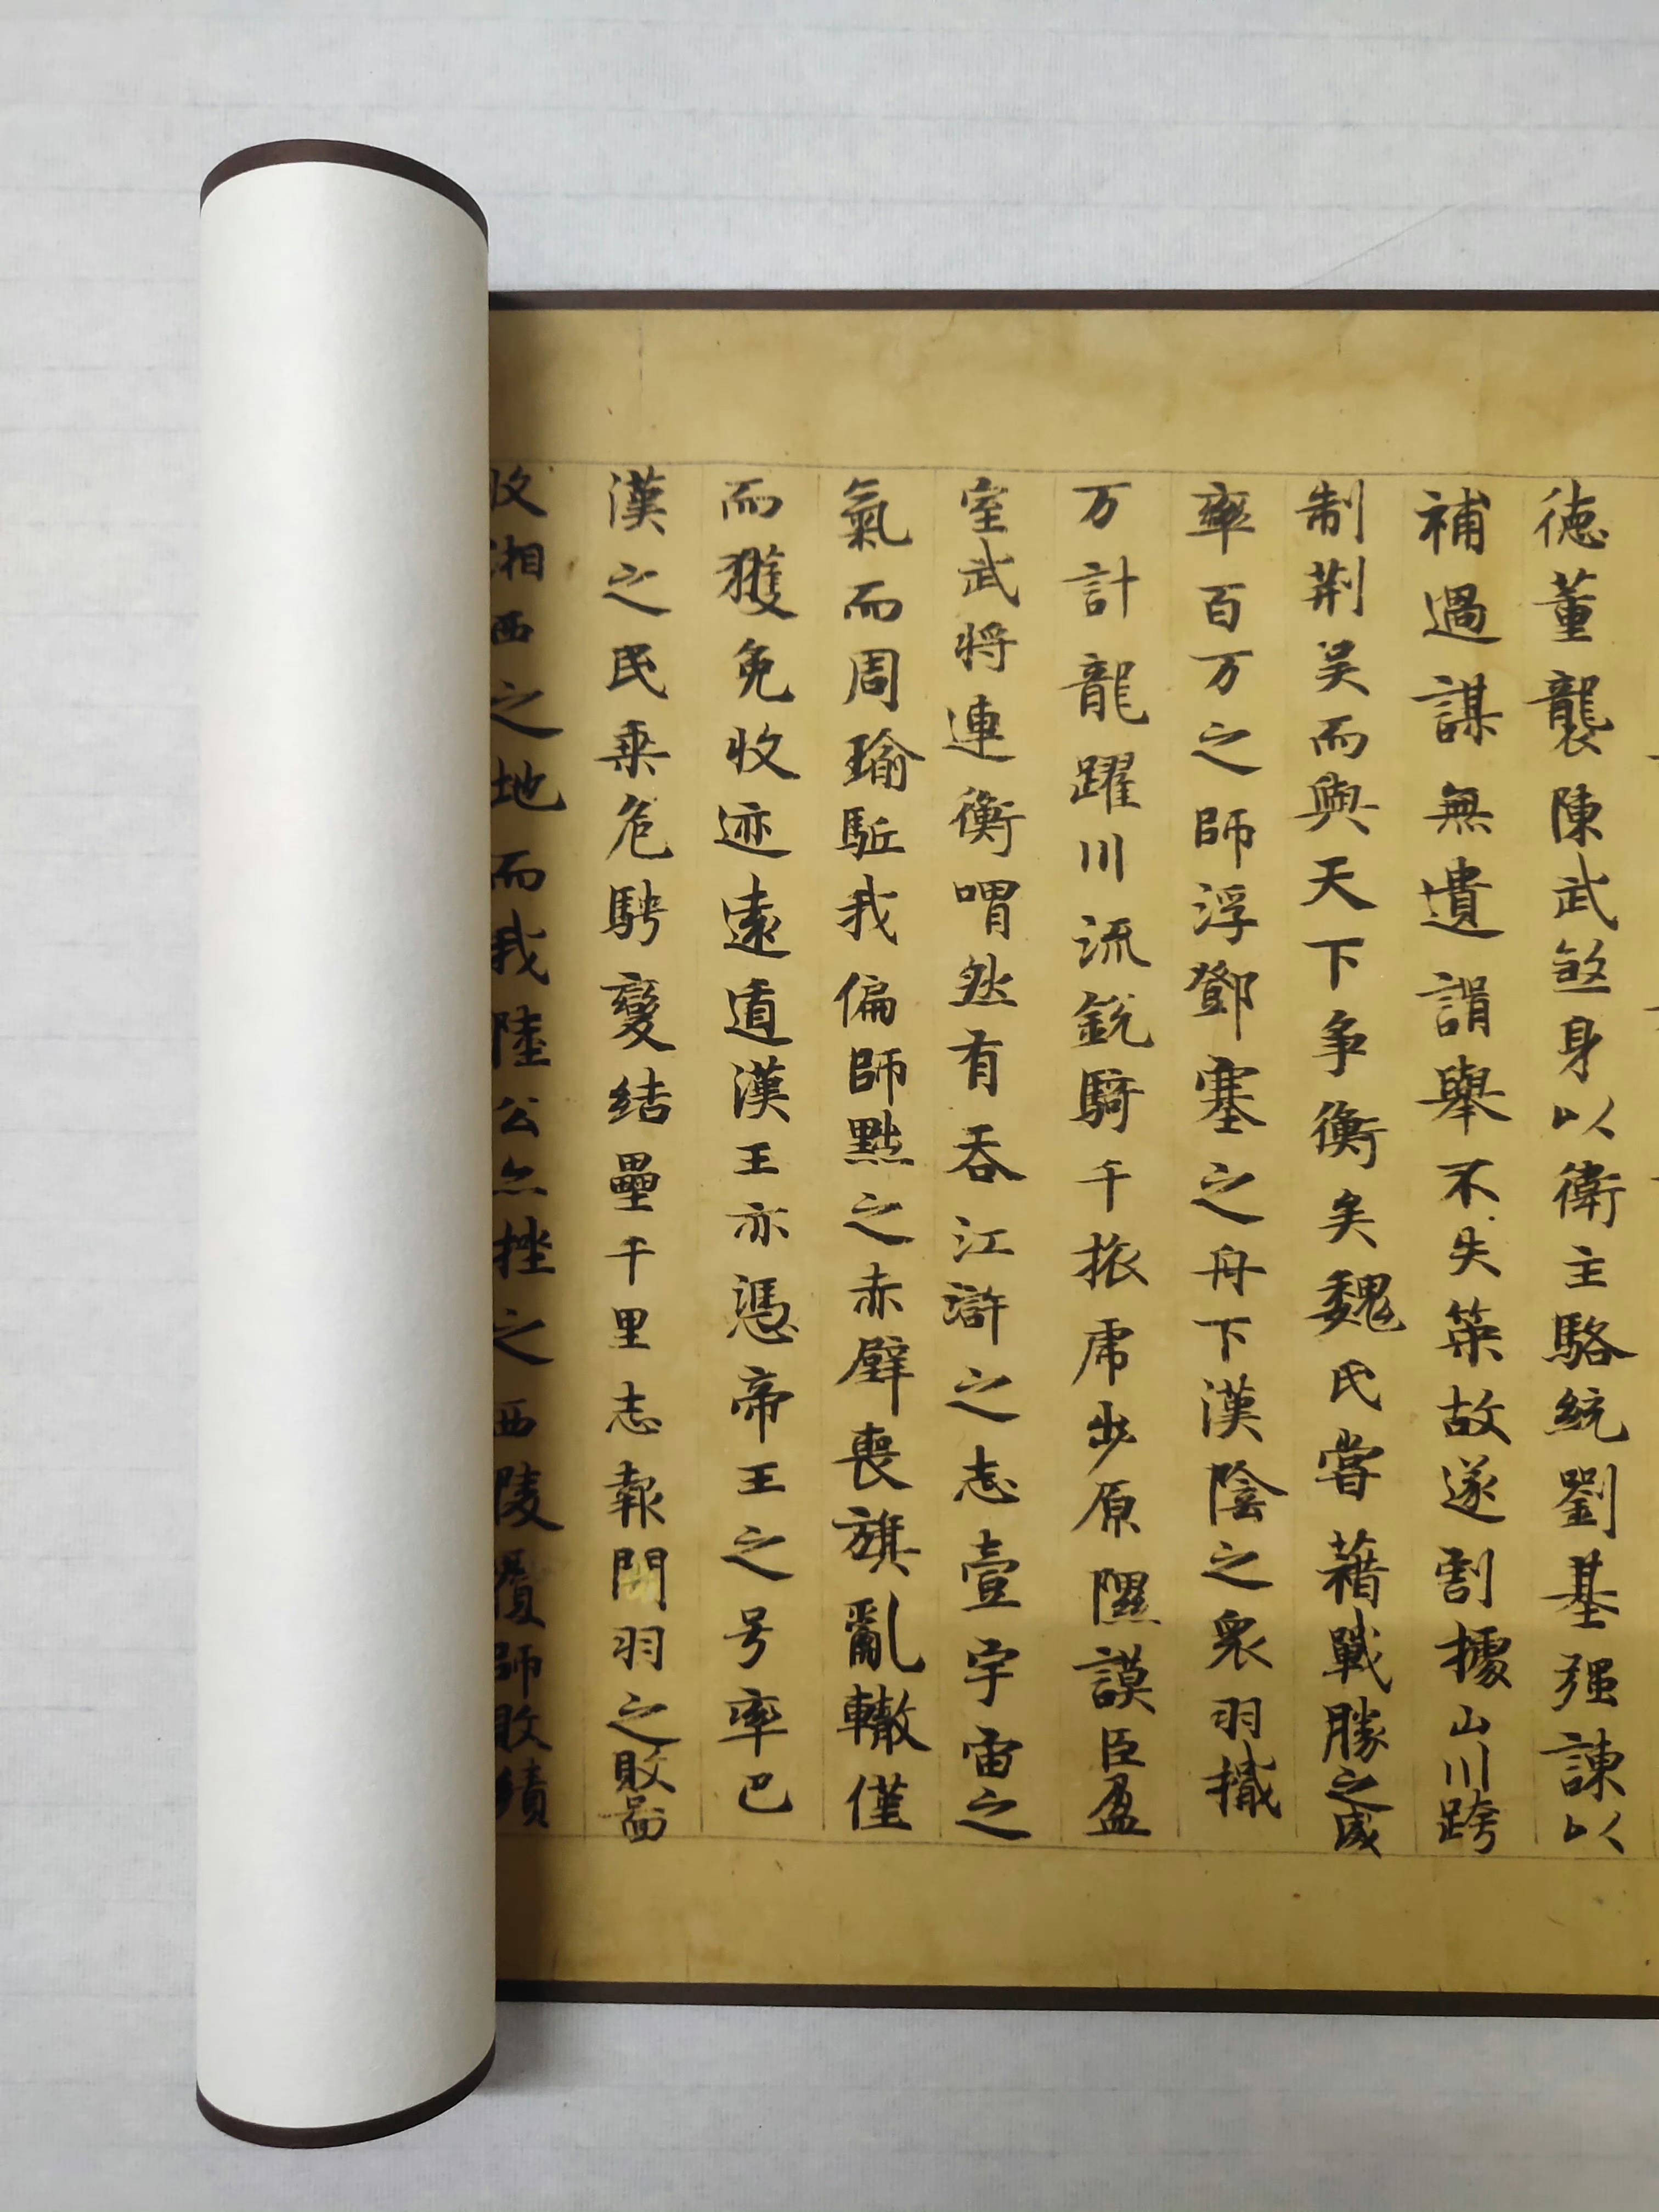 德董襲陳武煞身以衛主駱統劉基强諫以
補過謀無遺諝舉不失策故遂割據山川跨
制荆吴而與天下争衡矣魏氏嘗藉戰勝之威
率百万之師浮鄧塞之舟下漢陰之衆羽檝
万計龍躍川流銳騎千旅虎步原隰謨臣盈
室武將連衡喟然有吞江滸之志壹宇宙之
氣而周瑜駈我偏師黜之赤壁喪旗亂轍僅
而獲免收迹遠遁漢王亦憑帝王之号率巴
漢之民乗危騁變結壘千里志報關羽之敗啚
收湘西之地而我陸公亦挫之西陵覆師敗績